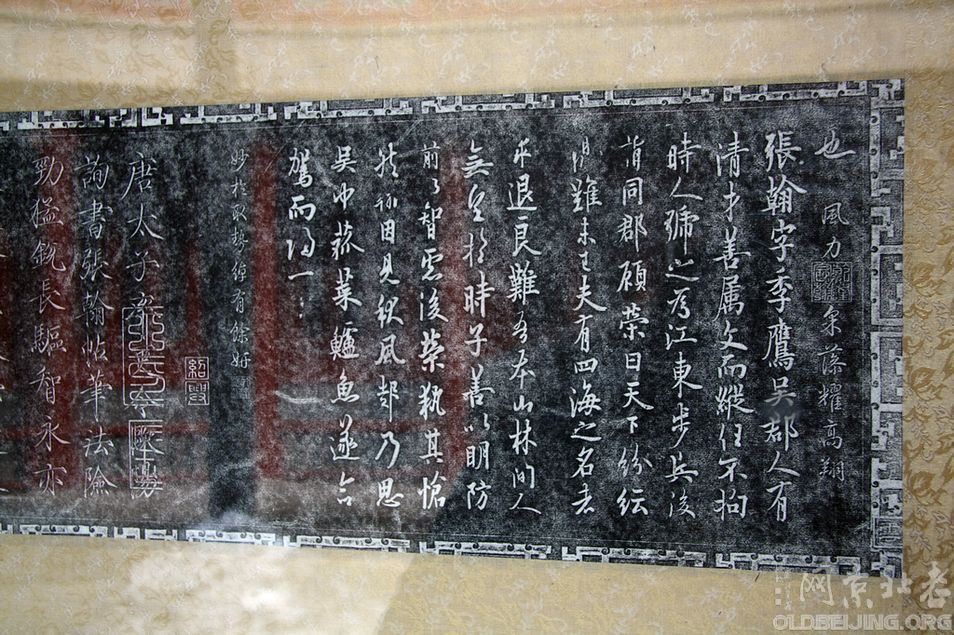 也 風力 泉 落耀高翔
張翰字季鷹吳郡人有
清才善属文而縱任不拘
時人號之為江東步兵後
謂同郡顧榮曰天下紛紜
難未已夫有四海之名者
求退良難吾本山林間人
無望於時子善以明防
前以智慮後榮執其愴
然 因見秋風起乃思
吳中菰菜鱸魚遂命
駕而歸
妙於取勢綽有餘妍
紹興
唐太子率更令歐陽
詢書張翰帖筆法險
勁猛銳長驅智永亦
老北京网
OLDBEIJING.ORG